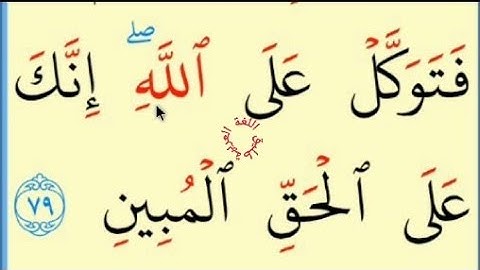 فَتَوَكَّلْ عَلَى ٱللَّهِ ۖ إِنَّكَ
عَلَى ٱلْحَقِّ ٱلْمُبِينِ ٧٩
اللغة